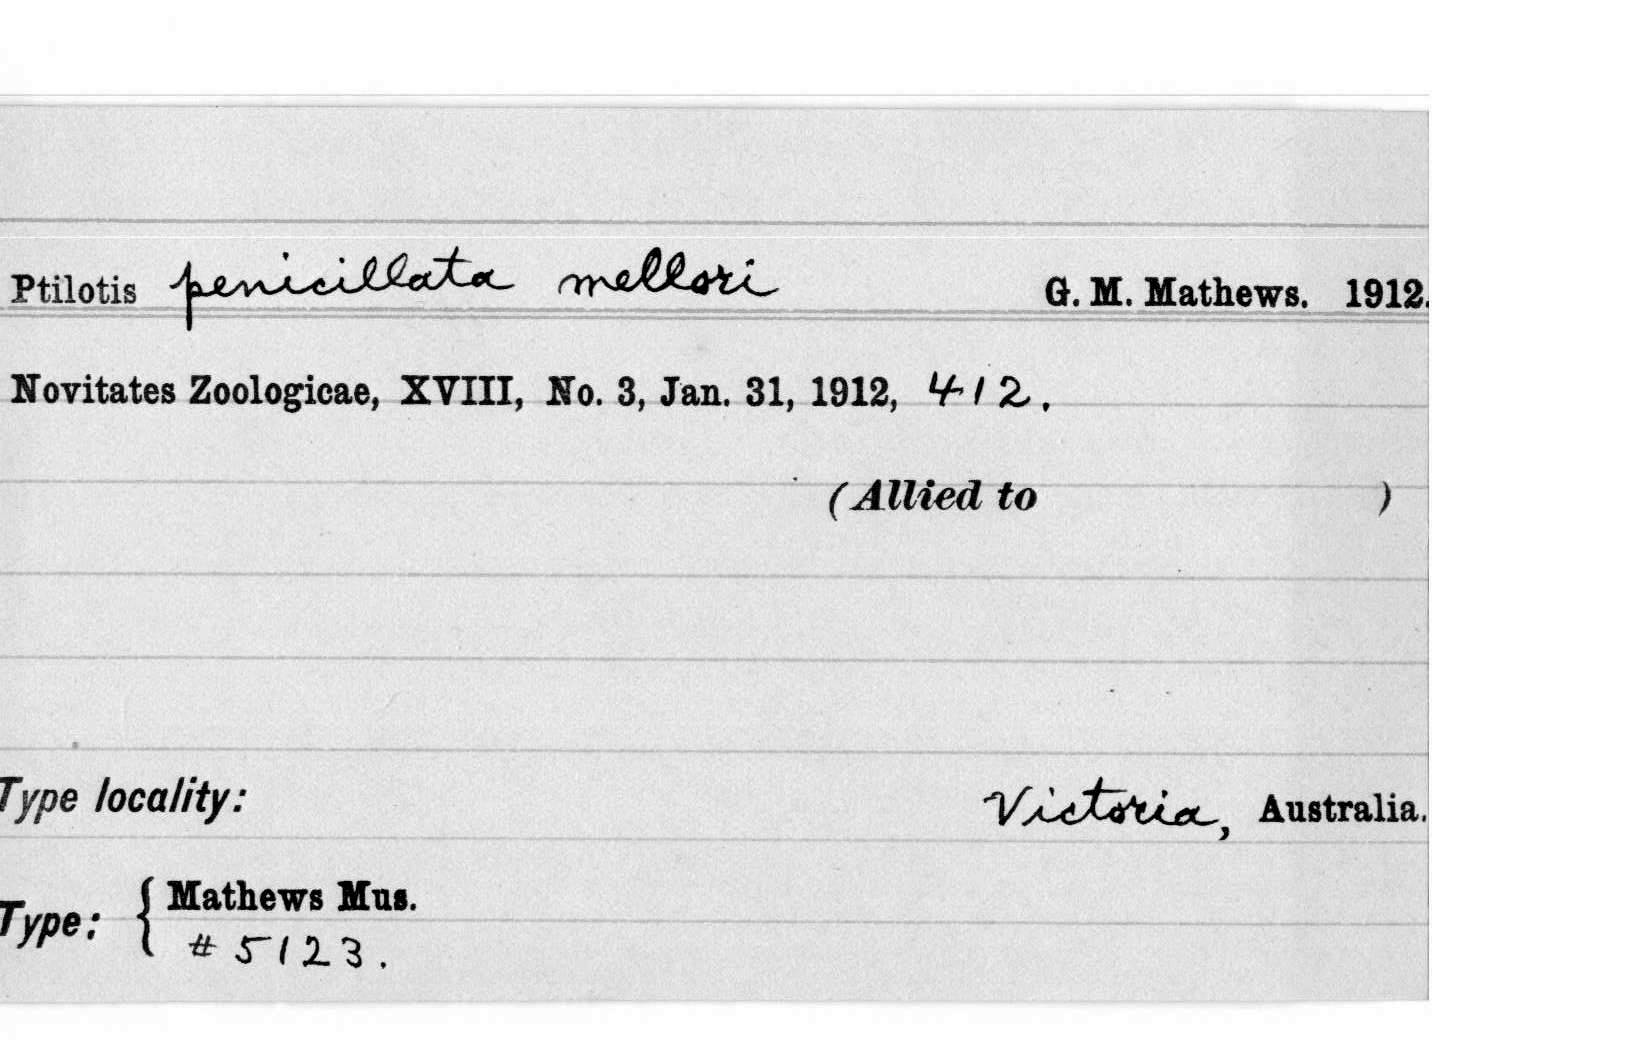 Ptilotis penicillata mellori G. M. Mathews. 1912.
Novitates Zoologicae, XVIII, No. 3, Jan. 31, 1912, 412.
(Allied to )
Type locality: Victoria, Australia.
Type: { Mathews Mus.
# 5123.